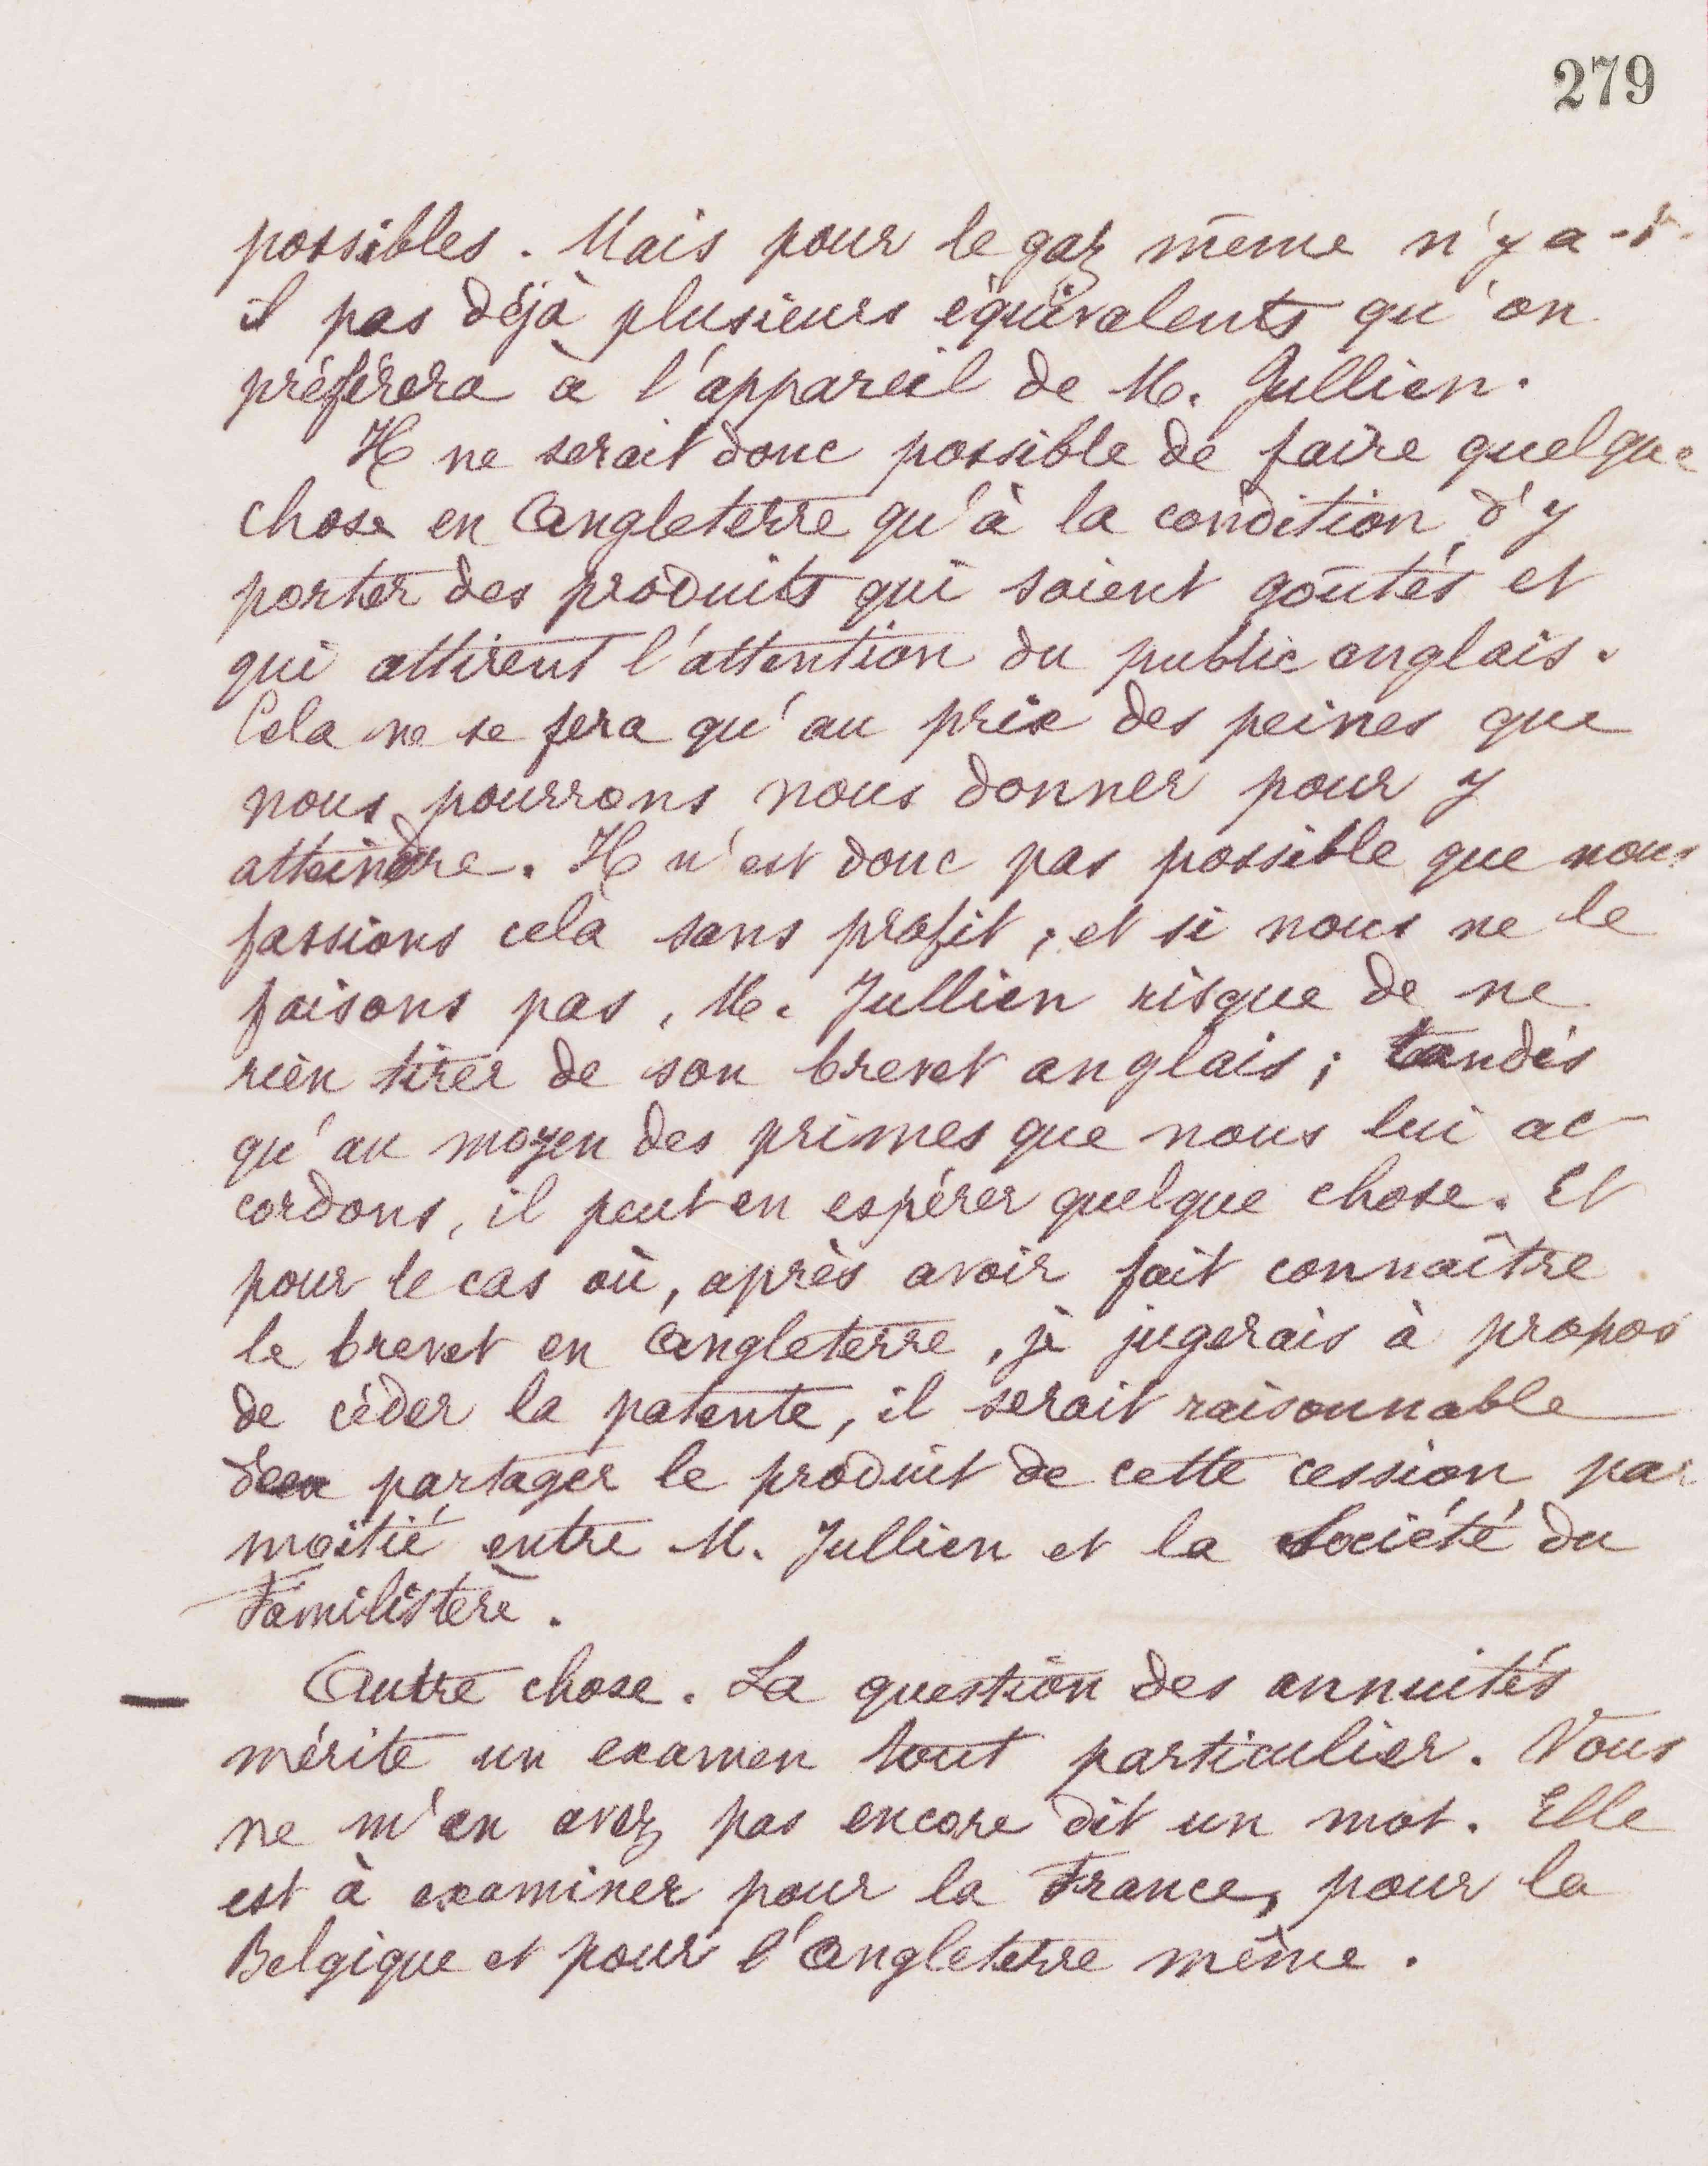 279
possibles. Mais pour le gaz même n'y a-t-
il pas déjà plusieurs équivalents qu'on
préférera à l'appareil de M. Jullien.
Il ne serait donc possible de faire quelque
chose en Angleterre qu'à la condition d'y
porter des produits qui soient goûtés et
qui attirent l'attention du public anglais.
Cela ne se fera qu'au prix des peines que
nous pourrons nous donner pour y
atteindre. Il n'est donc pas possible que nous
fassions cela sans profit ; et si nous ne le
faisons pas, M. Jullien risque de ne
rien tirer de son brevet anglais ; tandis
qu'au moyen des primes que nous lui ac-
cordons, il peut en espérer quelque chose. Et
pour le cas où, après avoir fait connaître
le brevet en Angleterre, je jugerais à propos
de céder la patente, il serait raisonnable
partager le produit de cette cession par
moitié entre M. Jullien et la Société du
Familistère.
— Autre chose. La question des annuités
mérite un examen tout particulier. Vous
ne m'en avez pas encore dit un mot. Elle
est à examiner pour la France, pour la
Belgique et pour l'Angleterre même.